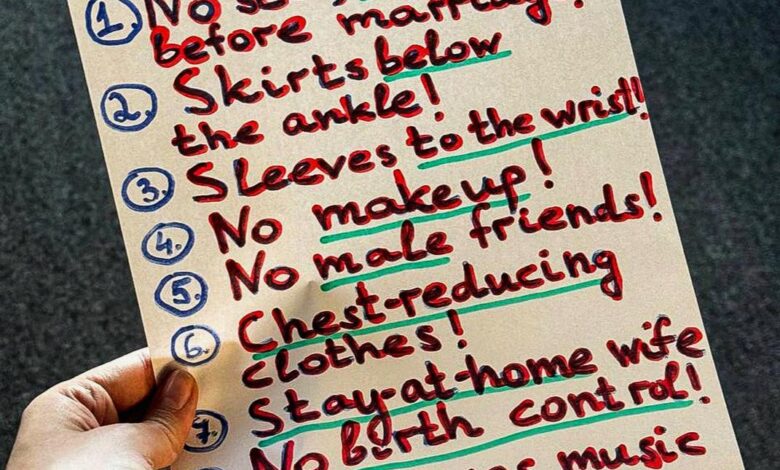 1. No
before marriage!
2. Skirts below
the ankle!
3. Sleeves to the wrist!
4. No makeup!
5. No male friends!
6. Chest-reducing
clothes!
7. Stay-at-home wife
No birth control!
music